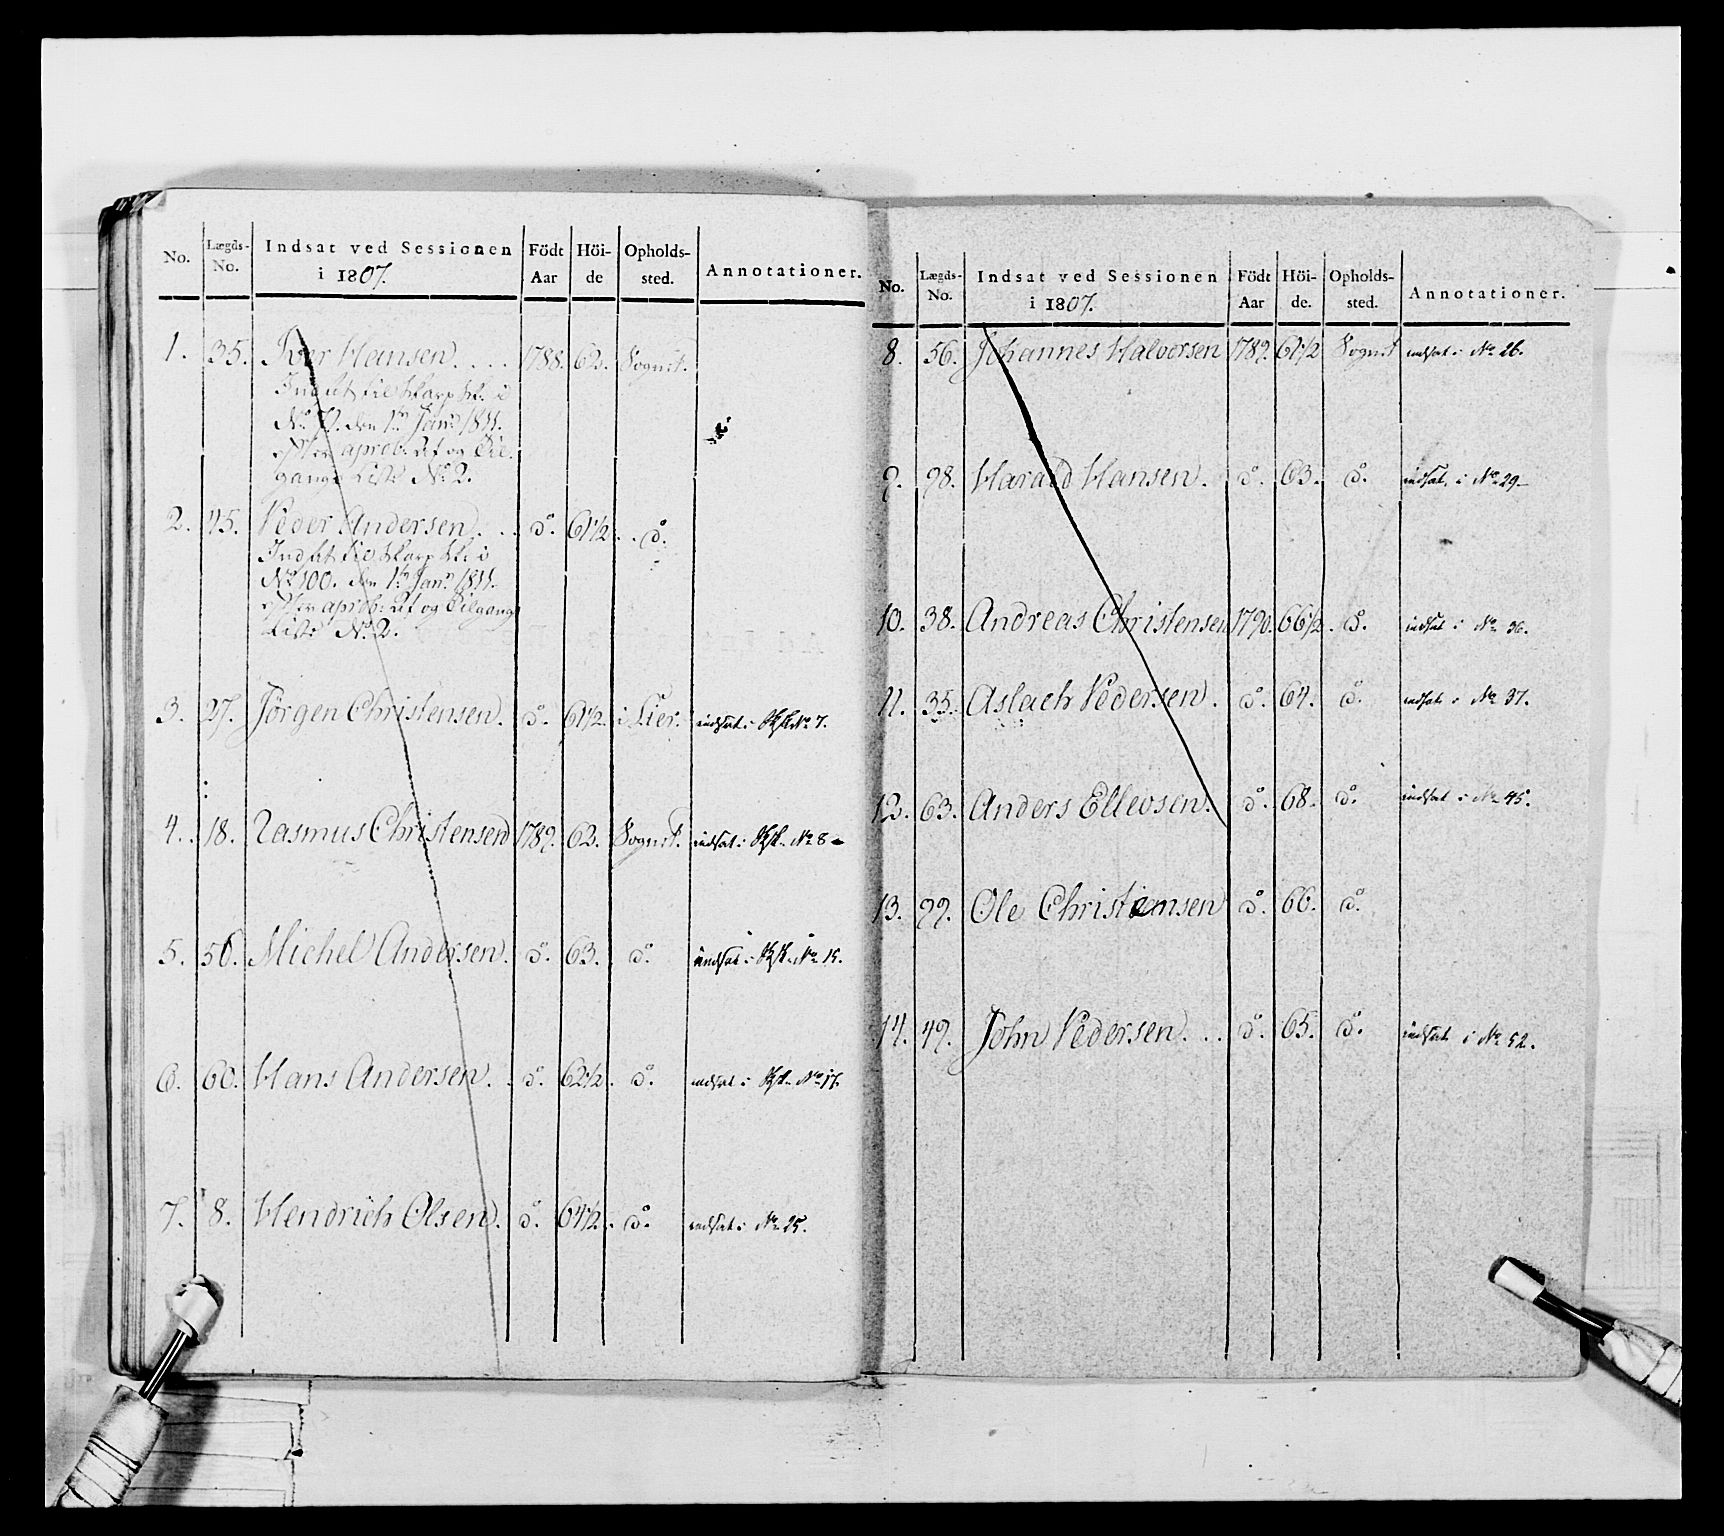 No. Lægds-No. Indsat ved Sessionen i 1807. Födt Aar Höide Opholdssted. Annotationer.
1. 35. Iver Hansen. . . . 1788. 62. Sognet.
Indsat til Skarp Sk. i
No 72. den 1ste Janr 1811.
efter aprob: Af og Til-
gangs Liste No. 2.
2. 45. Peder Andersen. . . do. 61½. . do.
Indsat til Skarp Sk. i
No 100. den 1ste Janr 1811.
efter aprob: Af og Tilgangs
Liste No. 2.
3. 27. Jörgen Christensen. do. 61½. i Lier. indsat i No 7.
4. 18. Rasmus Christensen 1789. 62. Sognet. indsat i No 8
5. 56. Michel Andersen. do. 63. do. indsat i No 15.
6. 60. Hans Andersen. . do. 62½. do. indsat i No 17.
7. 8. Hendrich Olsen. do. 64½. do. indsat i No 25.
No. Lægds-No. Indsat ved Sessionen i 1807. Födt Aar Höide. Opholdssted. Annotationer.
8. 56. Johannes Halvorsen 1789. 61½ Sognet indsat i No 26.
9. 98. Harald Hansen. do. 63. do. indsat i No 29
10. 38. Andreas Christensen 1790. 66½. do. indsat i No 36.
11. 35. Aslach Pedersen. do. 64. do. indsat i No 37.
12. 63. Anders Ellevsen. do. 68. do. indsat i No 45.
13. 99. Ole Christiansen do. 66. do.
14. 49. John Pedersen. . . do. 65. do. indsat i No 52.